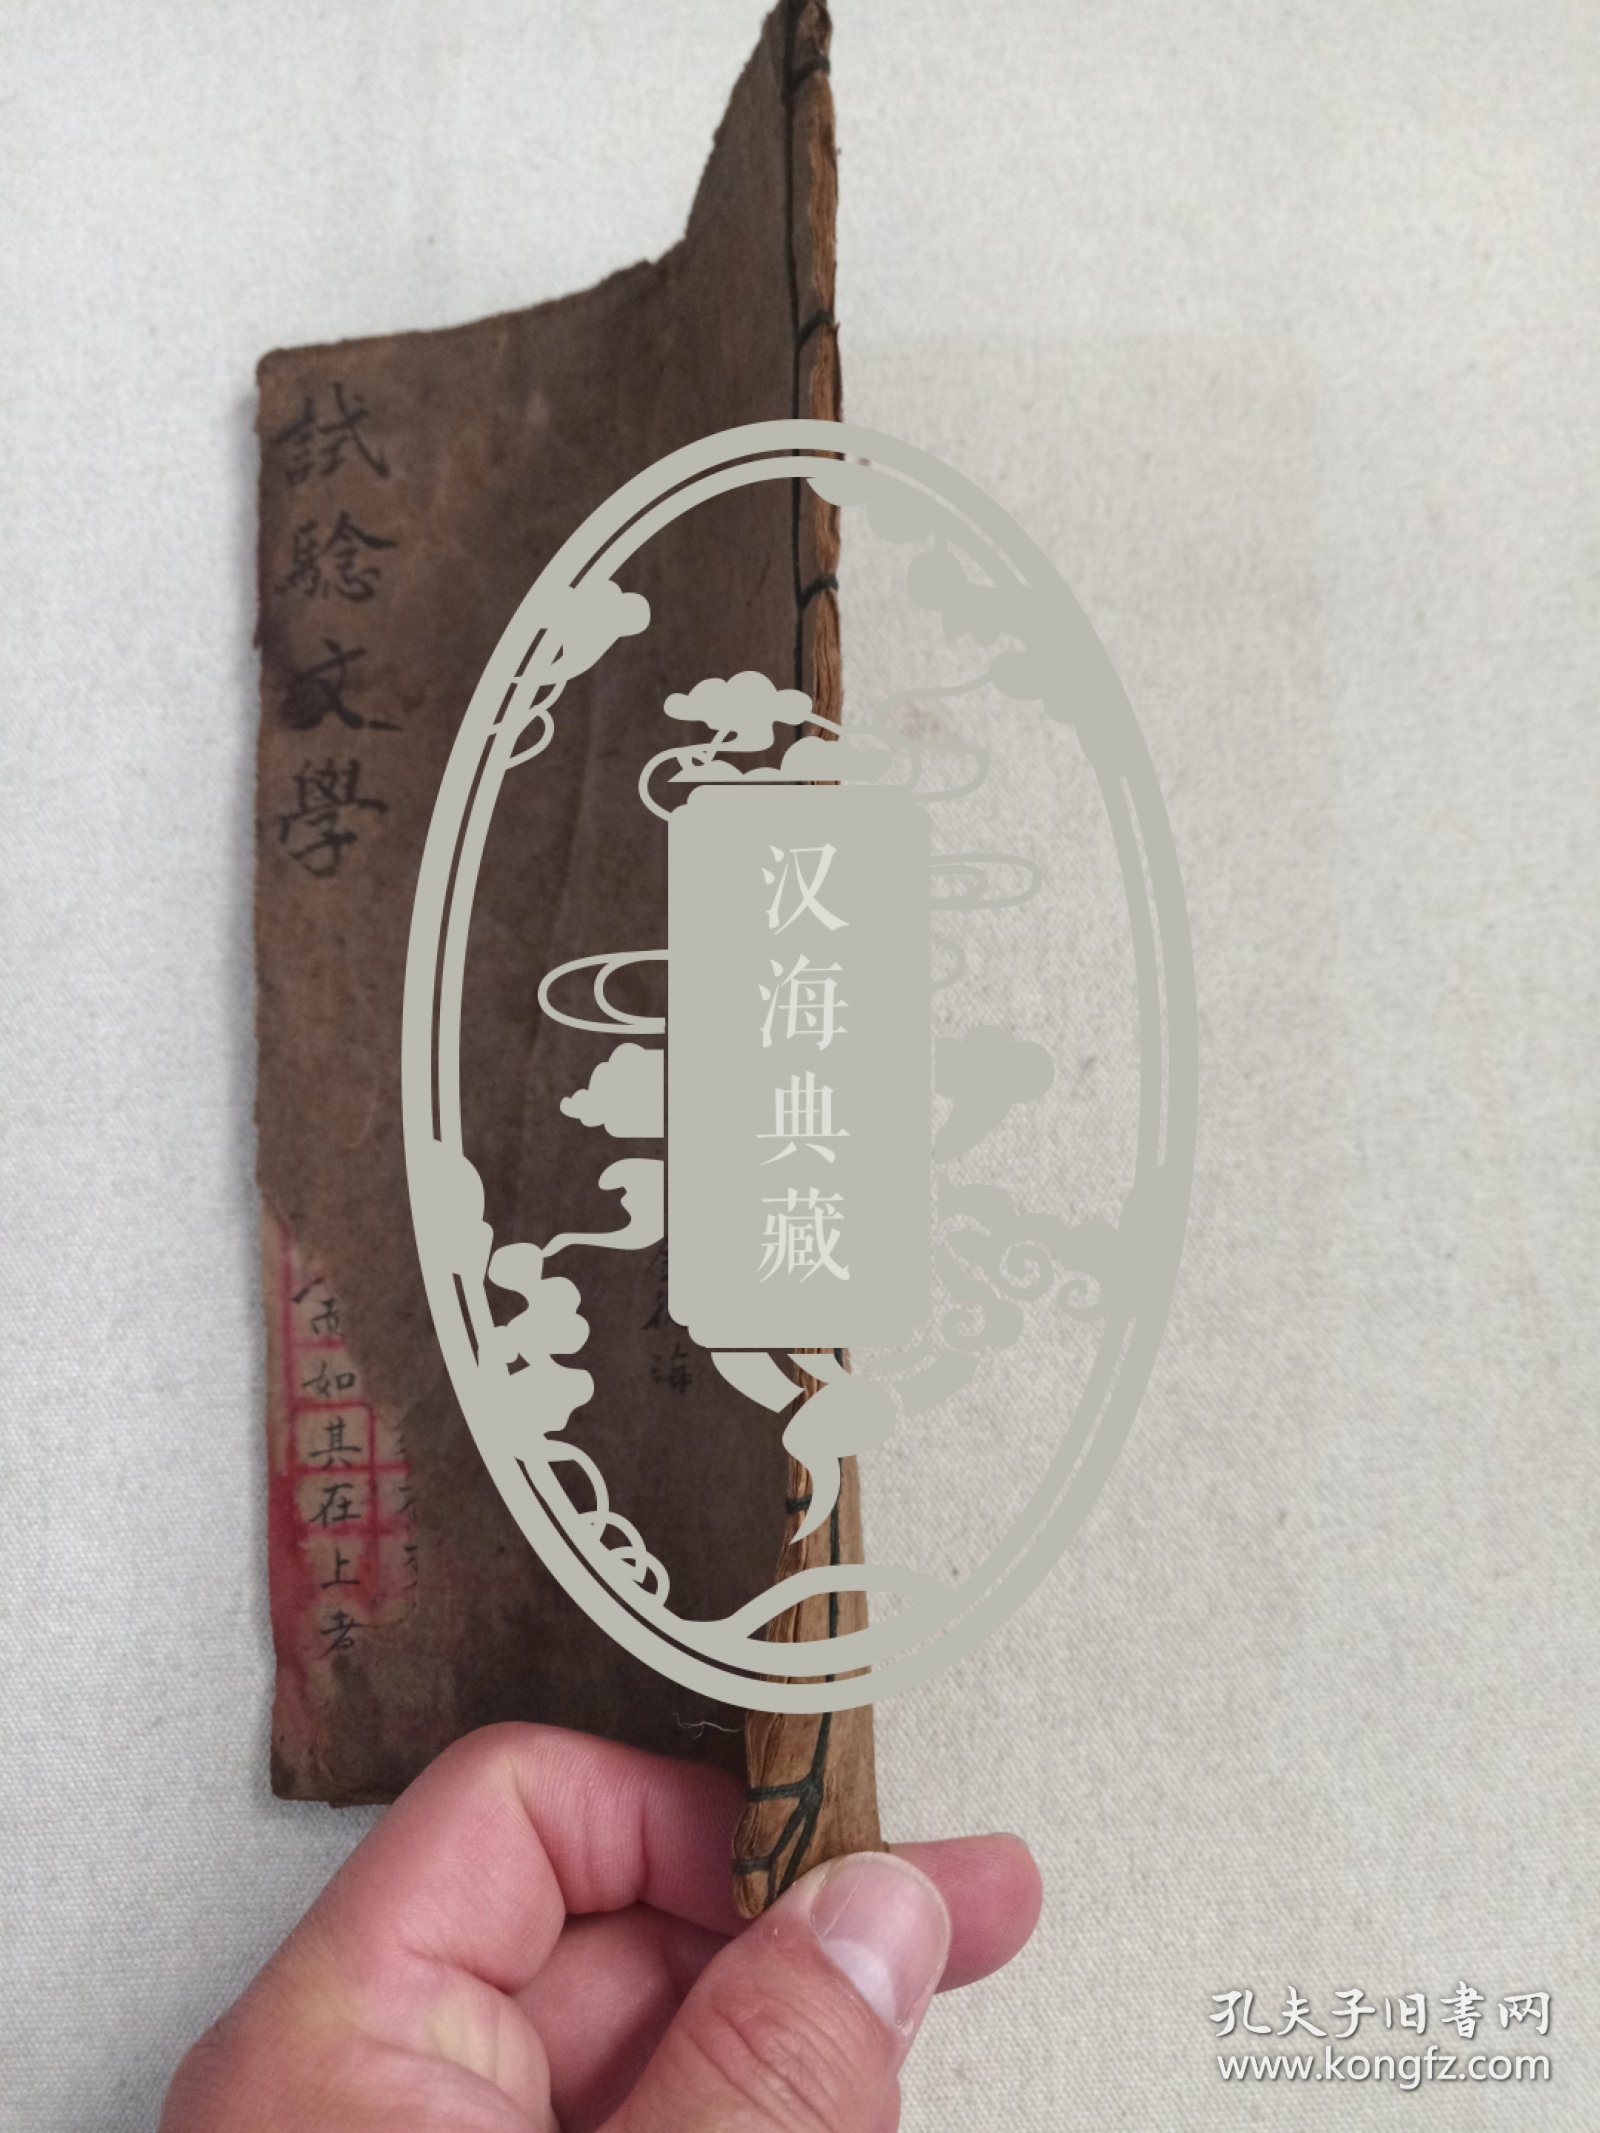 試騐文學
如其在上者
海
汉海典藏
孔夫子旧书网
www.kongfz.com